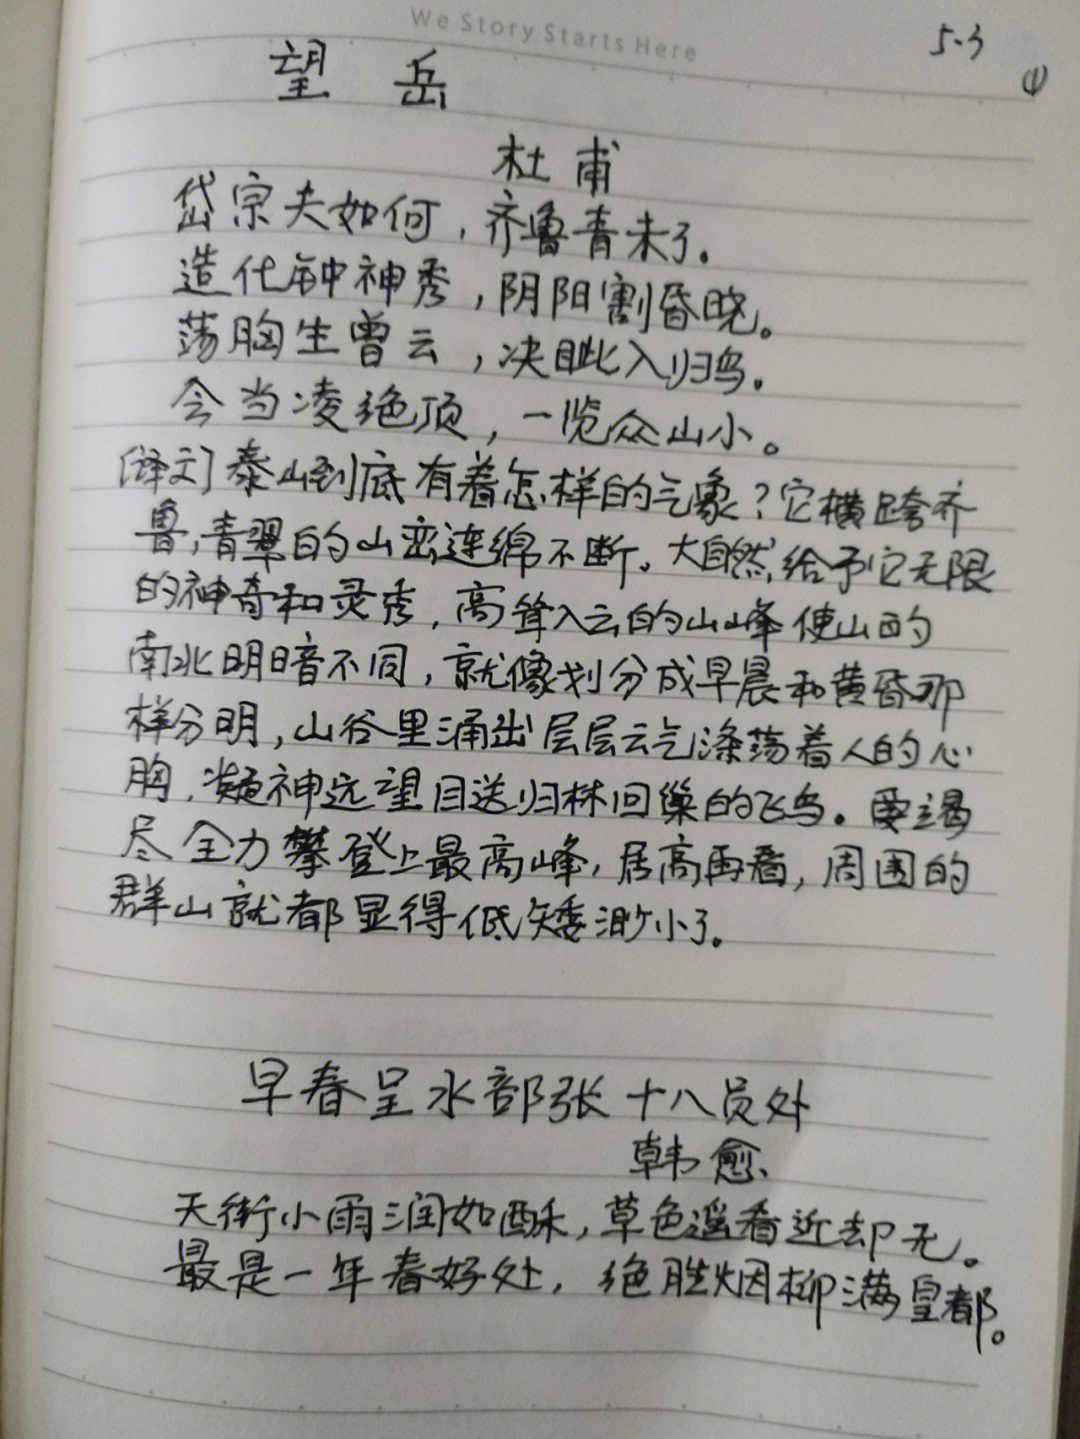 We Story Starts Here
5.3
①
望岳
杜甫
岱宗夫如何，齐鲁青未了。
造化钟神秀，阴阳割昏晓。
荡胸生曾云，决眦入归鸟。
会当凌绝顶，一览众山小。
[译文]泰山到底有着怎样的气象？它横跨齐
鲁，青翠的山峦连绵不断。大自然给予它无限
的神奇和灵秀，高耸入云的山峰使山的
南北明暗不同，就像划分成早晨和黄昏那
样分明，山谷里涌出层层云气涤荡着人的心
胸，凝神远望目送归林回巢的飞鸟。要竭
尽全力攀登上最高峰，居高再看，周围的
群山就都显得低矮渺小了。
早春呈水部张十八员处
韩愈
天街小雨润如酥，草色遥看近却无。
最是一年春好处，绝胜烟柳满皇都。